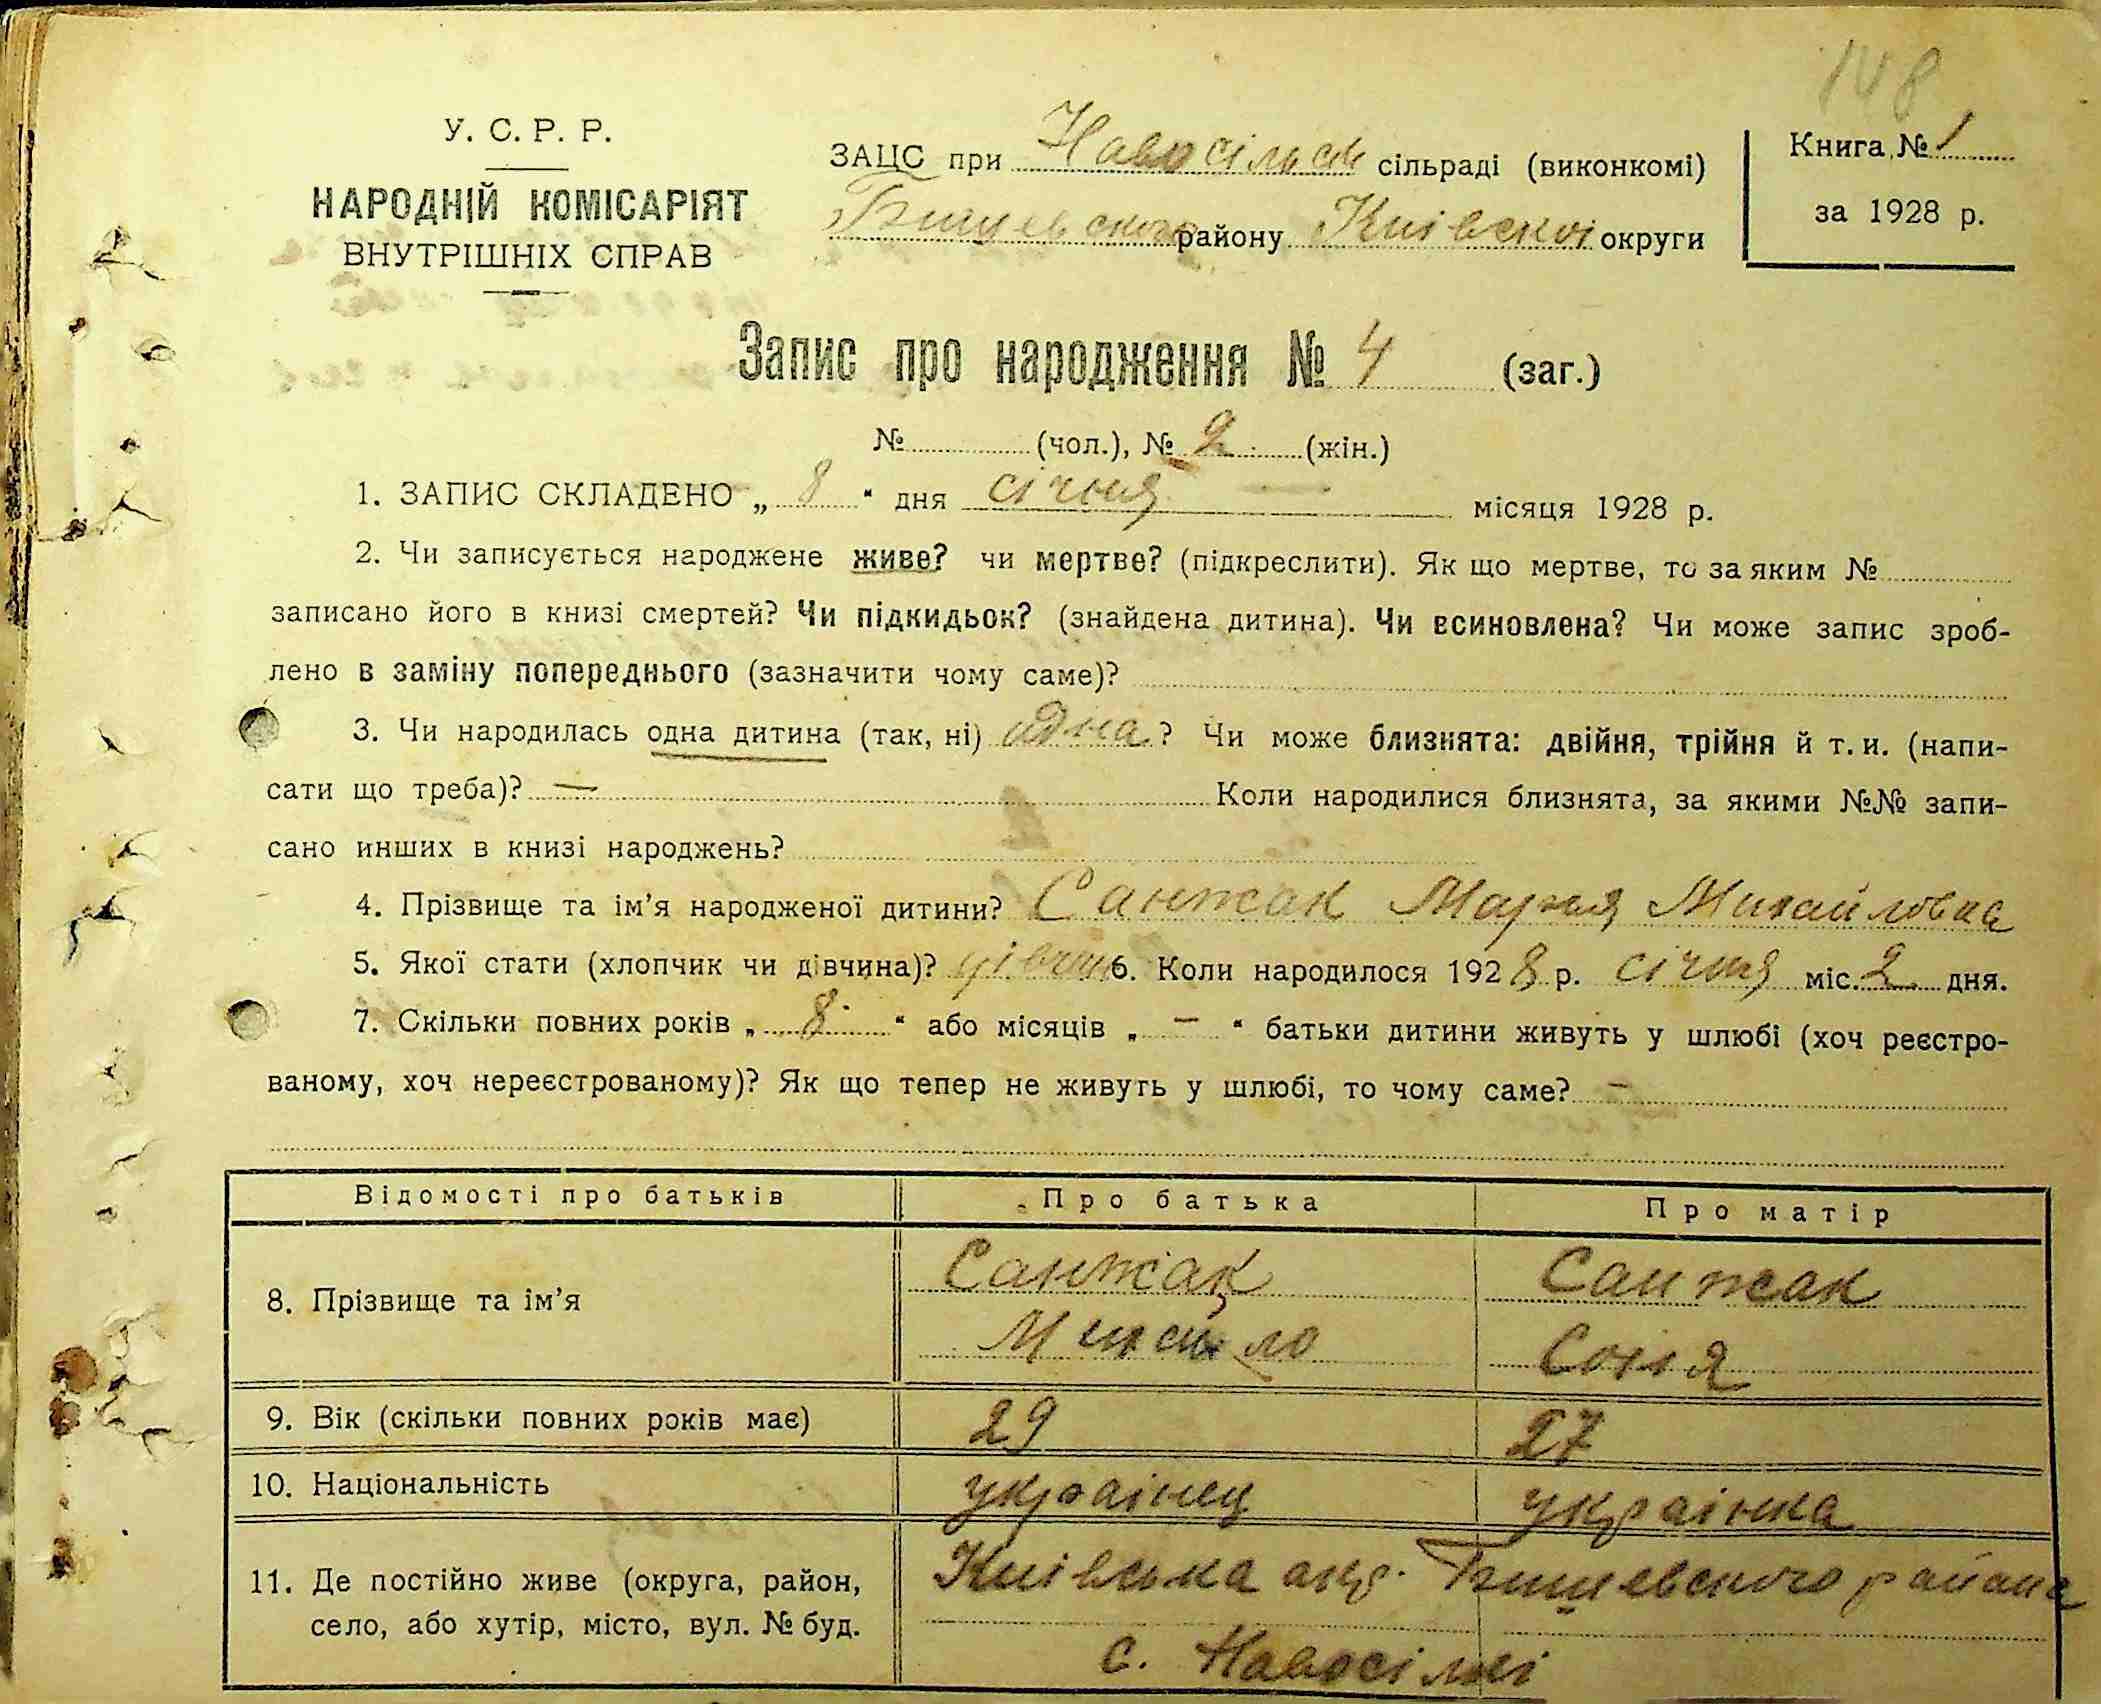 148
У. С. Р. Р.
НАРОДНІЙ КОМІСАРІЯТ
ВНУТРІШНІХ СПРАВ
ЗАЦС при Новосільск сільраді (виконкомі)
Бишевского району Київскої округи
Книга № 1
за 1928 р.
Запис про народження № 4 (заг.)
№ (чол.), № 2 (жін.)
1. ЗАПИС СКЛАДЕНО „ 8 “ дня січня — місяця 1928 р.
2. Чи записується народжене живе? чи мертве? (підкреслити). Як що мертве, то за яким №
записано його в книзі смертей? Чи підкидьок? (знайдена дитина). Чи всиновлена? Чи може запис зроб-
лено в заміну попереднього (зазначити чому саме)?
3. Чи народилась одна дитина (так, ні) одна? Чи може близнята: двійня, трійня й т. и. (напи-
сати що треба)? — Коли народилися близнята, за якими №№ запи-
сано инших в книзі народжень?
4. Прізвище та ім’я народженої дитини? Санжак Марья Михайловна
5. Якої стати (хлопчик чи дівчина)? дівчин 6. Коли народилося 1928 р. січня міс. 2 дня.
7. Скільки повних років „ 8 “ або місяців „ — “ батьки дитини живуть у шлюбі (хоч реєстро-
ваному, хоч нереєстрованому)? Як що тепер не живуть у шлюбі, то чому саме? —
Відомості про батьків Про батька Про матір
8. Прізвище та ім’я Санжак Санжак
Михайло Соня
9. Вік (скільки повних років має) 29 27
10. Національність українец українка
11. Де постійно живе (округа, район, Київська окр. Бишевского района
село, або хутір, місто, вул. № буд. с. Новосілкі